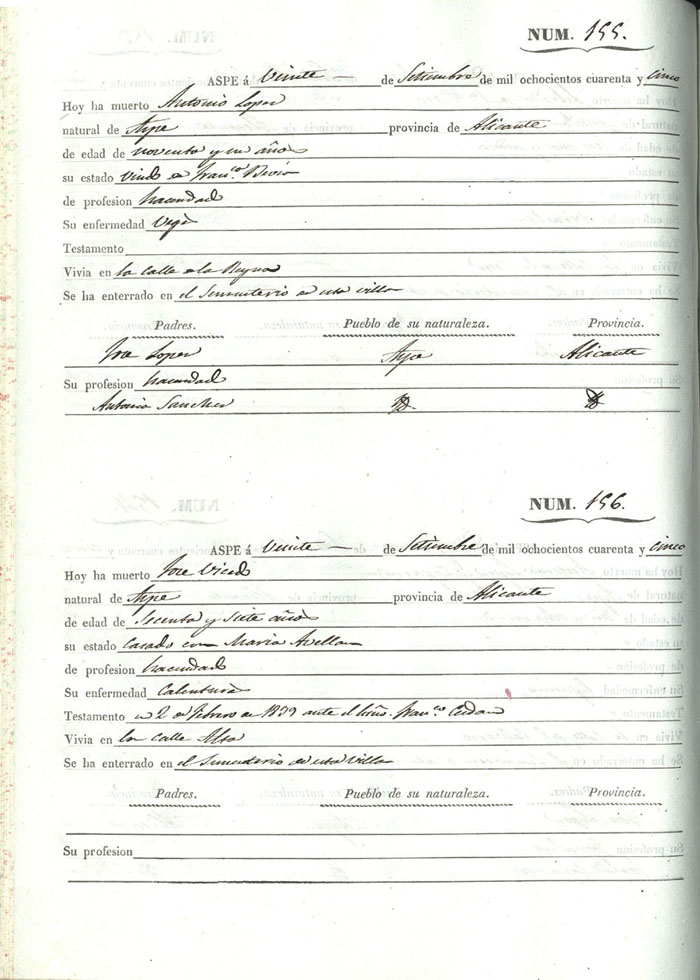 NUM. 155.
ASPE á Veinte de Setiembre de mil ochocientos cuarenta y cinco
Hoy ha muerto Antonio Lopez
natural de Aspe provincia de Alicante
de edad de noventa y un años
su estado Viudo de Fran.ca
de profesion hacendad
Su enfermedad Vegé
Testamento
Vivia en la calle de la Reyna
Se ha enterrado en el Sementerio de esta villa
Padres. Pueblo de su naturaleza. Provincia.
Jose Lopez Aspe Alicante
Su profesion hacendad
Antonia Sanchez
NUM. 156.
ASPE á Veinte de Setiembre de mil ochocientos cuarenta y cinco
Hoy ha muerto Jose Vicedo
natural de Aspe provincia de Alicante
de edad de Secenta y Siete años
su estado Casado con Maria Avellan
de profesion hacendad
Su enfermedad Calentura
Testamento en 2 de Febrero de 1839 ante el Fran.co
Vivia en la calle
Se ha enterrado en el Sementerio de esta Villa
Padres. Pueblo de su naturaleza. Provincia.
Su profesion